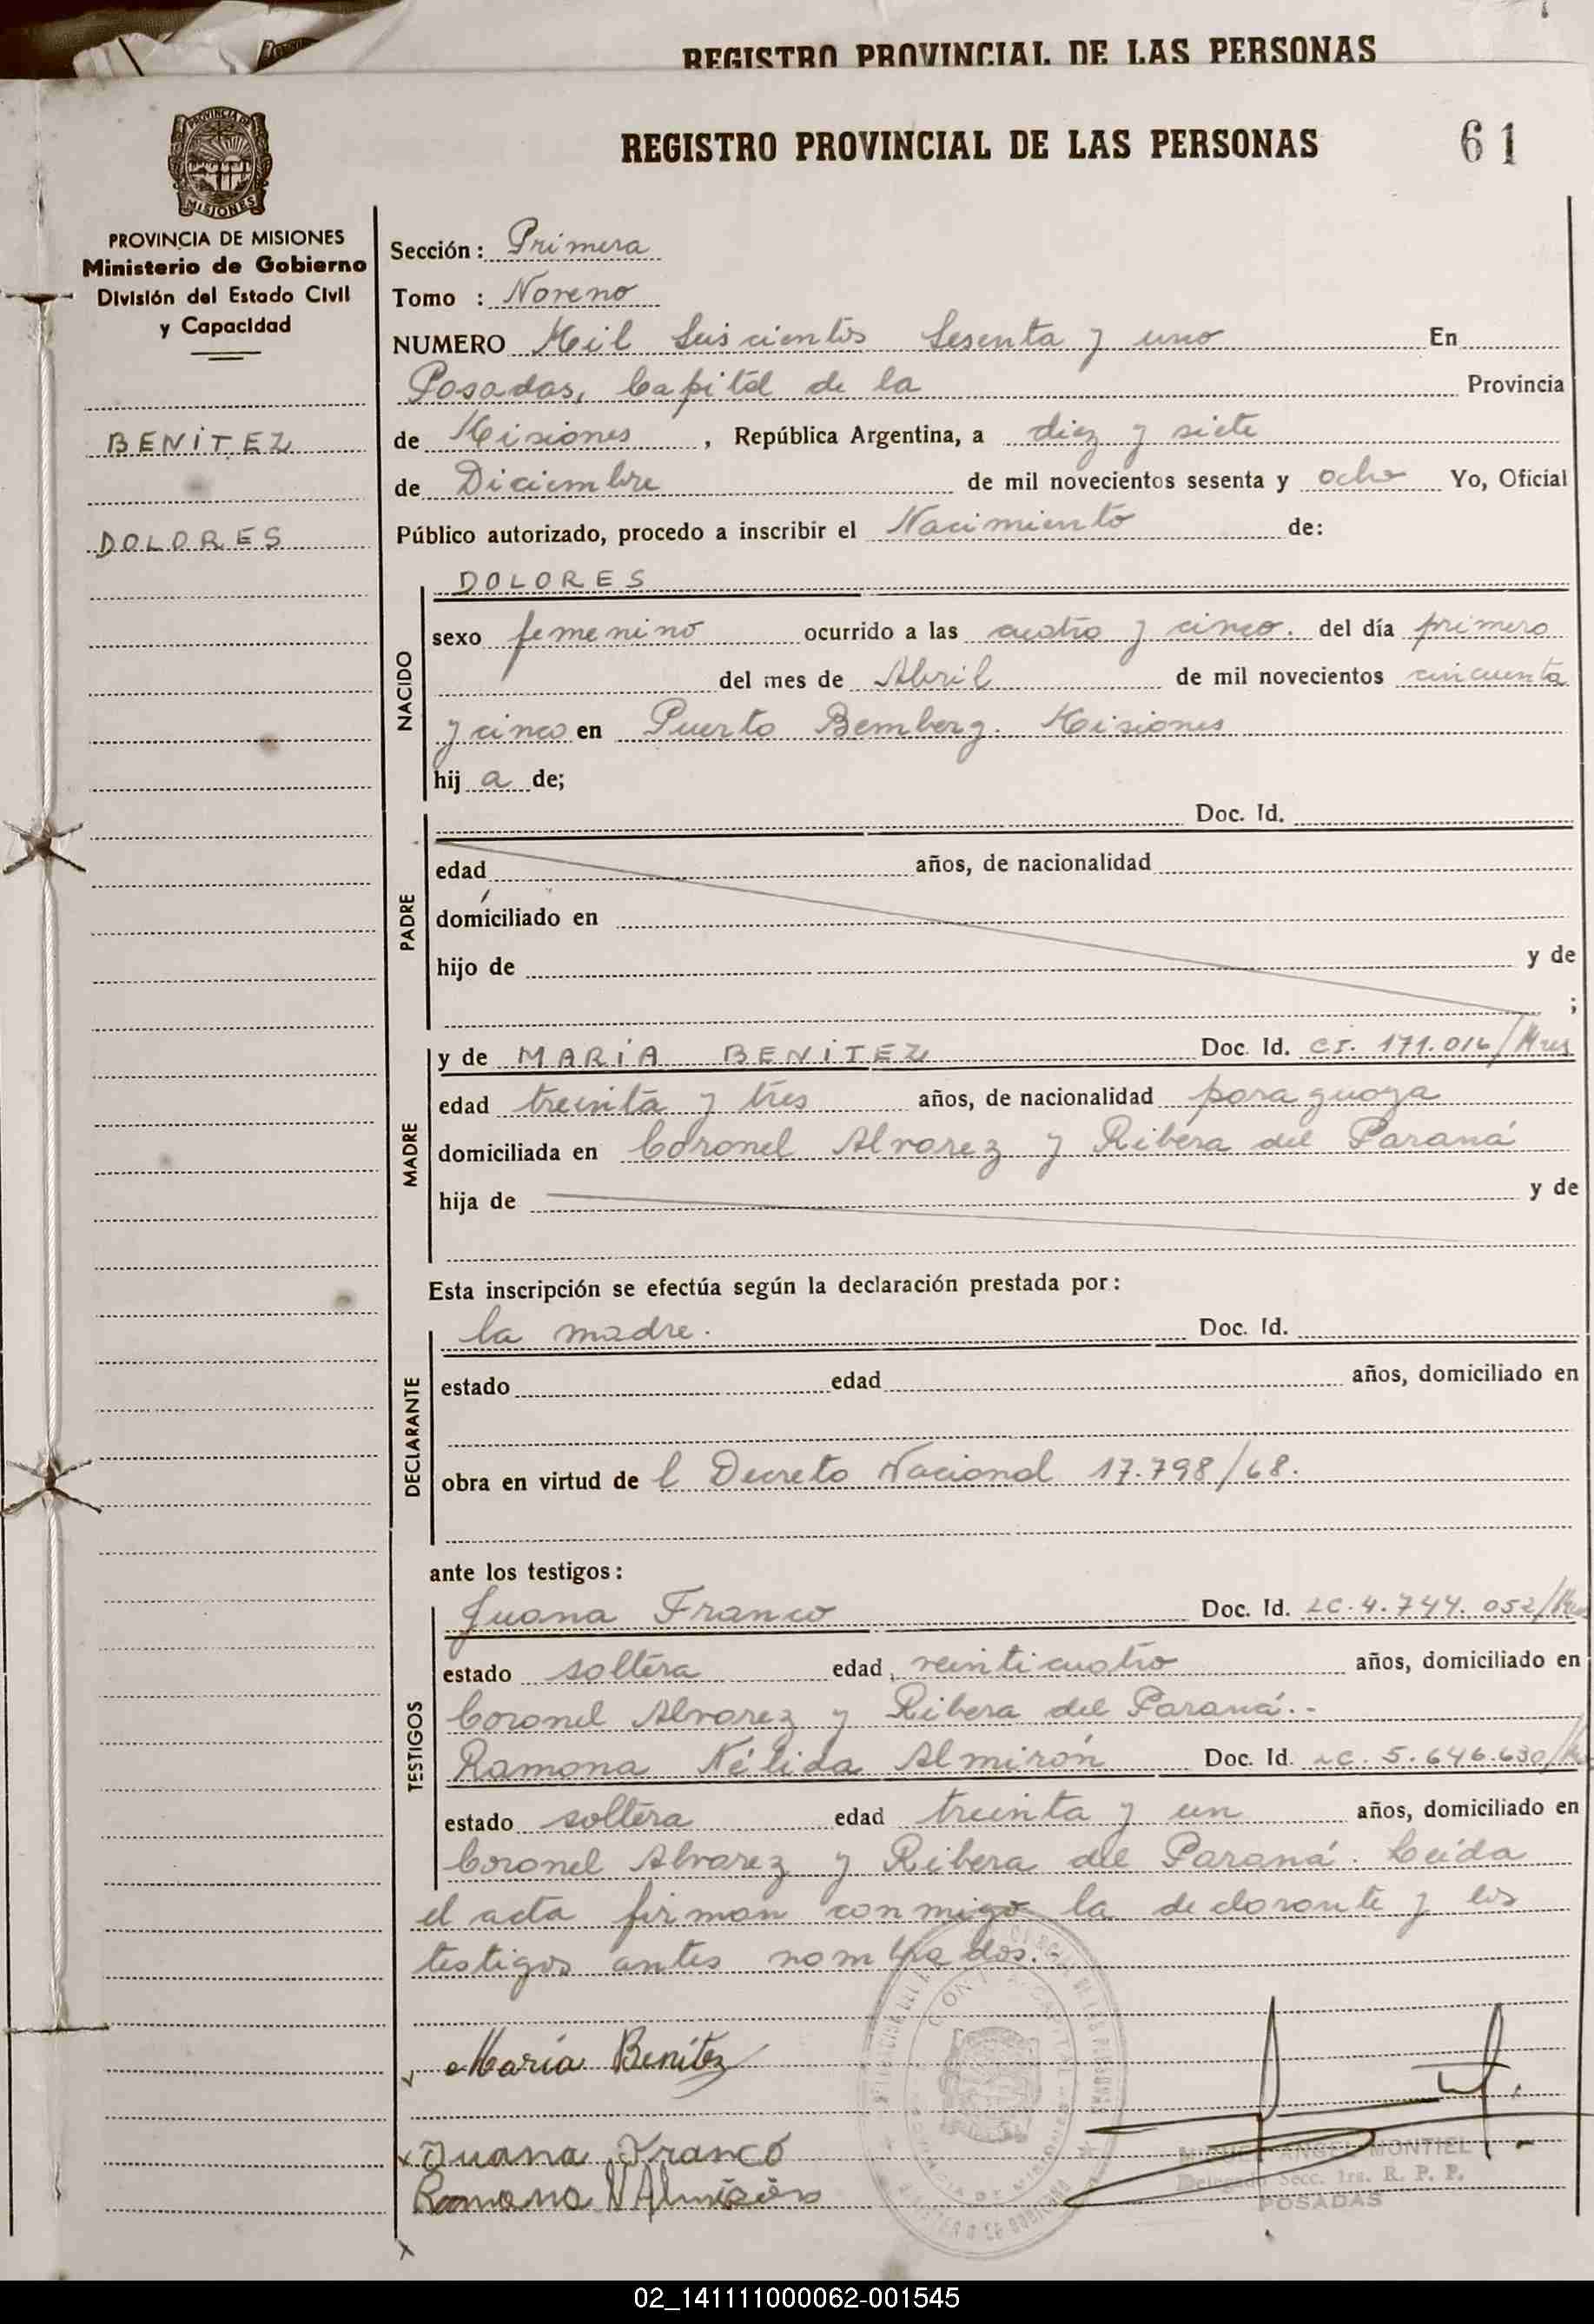 REGISTRO PROVINCIAL DE LAS PERSONAS
REGISTRO PROVINCIAL DE LAS PERSONAS 61
PROVINCIA DE MISIONES
PROVINCIA DE MISIONES
Ministerio de Gobierno
División del Estado Civil
y Capacidad
BENÍTEZ
DOLORES
Sección: Primera
Tomo : Noveno
NUMERO Mil Seiscientos Sesenta y uno En
Posadas, Capital de la Provincia
de Misiones, República Argentina, a diez y siete
de Diciembre de mil novecientos sesenta y ocho Yo, Oficial
Público autorizado, procedo a inscribir el Nacimiento de:
NACIDO
DOLORES
sexo femenino ocurrido a las cuatro y cinco. del día primero
del mes de Abril de mil novecientos cincuenta
y cinco en Puerto Bemberg. Misiones
hij a de;
PADRE
Doc. Id.
edad años, de nacionalidad
domiciliado en
hijo de y de
;
MADRE
y de MARÍA BENÍTEZ Doc. Id. CI. 171.016/Mnes
edad treinta y tres años, de nacionalidad paraguaya
domiciliada en Coronel Alvarez y Ribera del Paraná
hija de y de
Esta inscripción se efectúa según la declaración prestada por:
DECLARANTE
la madre. Doc. Id.
estado edad años, domiciliado en
obra en virtud de l Decreto Nacional 17.798/68.
ante los testigos:
TESTIGOS
Juana Franco Doc. Id. LC. 4.744.052/
estado soltera edad veinticuatro años, domiciliado en
Coronel Alvarez y Ribera del Paraná.-
Ramona Nélida Almirón Doc. Id. LC. 5.646.630/
estado soltera edad treinta y un años, domiciliado en
Coronel Alvarez y Ribera del Paraná. Leída
el acta firman conmigo la declarante y los
testigos antes nombrados.-
María Benítez
Juana Franco
Ramona N Almirón
MIGUEL ANGEL MONTIEL
Delegado Secc. 1ra. R. P. P.
POSADAS
02_141111000062-001545